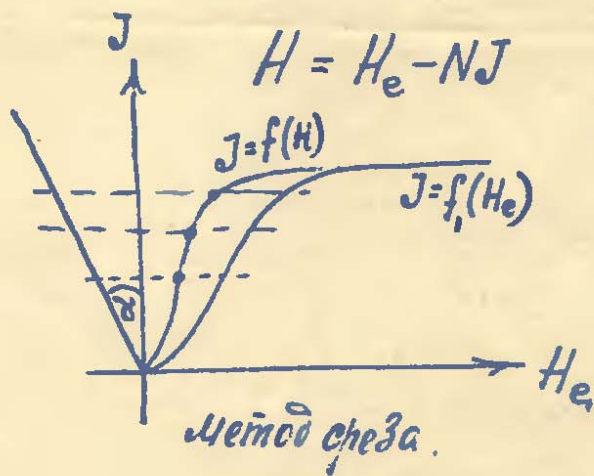 J
H = Hₑ - NJ
J=f(H)
J=f₁(Hₑ)
α
Hₑ
метод среза.